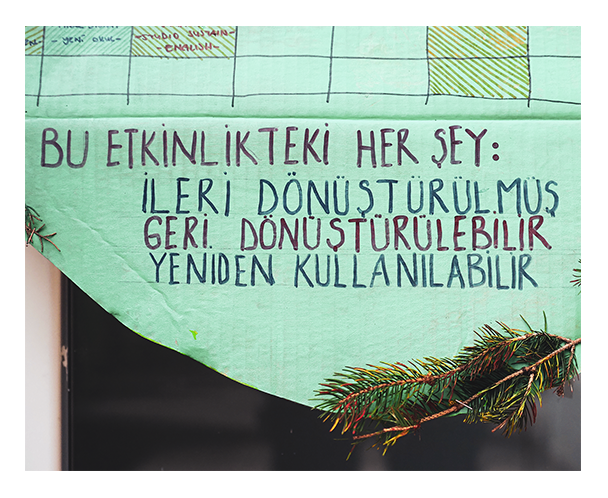 - YENİ OKUL-
-STUDIO SUSTAIN-
- ENGLISH-
BU ETKİNLİKTEKİ HER ŞEY:
İLERİ DÖNÜŞTÜRÜLMÜŞ
GERİ DÖNÜŞTÜRÜLEBILIR
YENIDEN KULLANILABİLİR